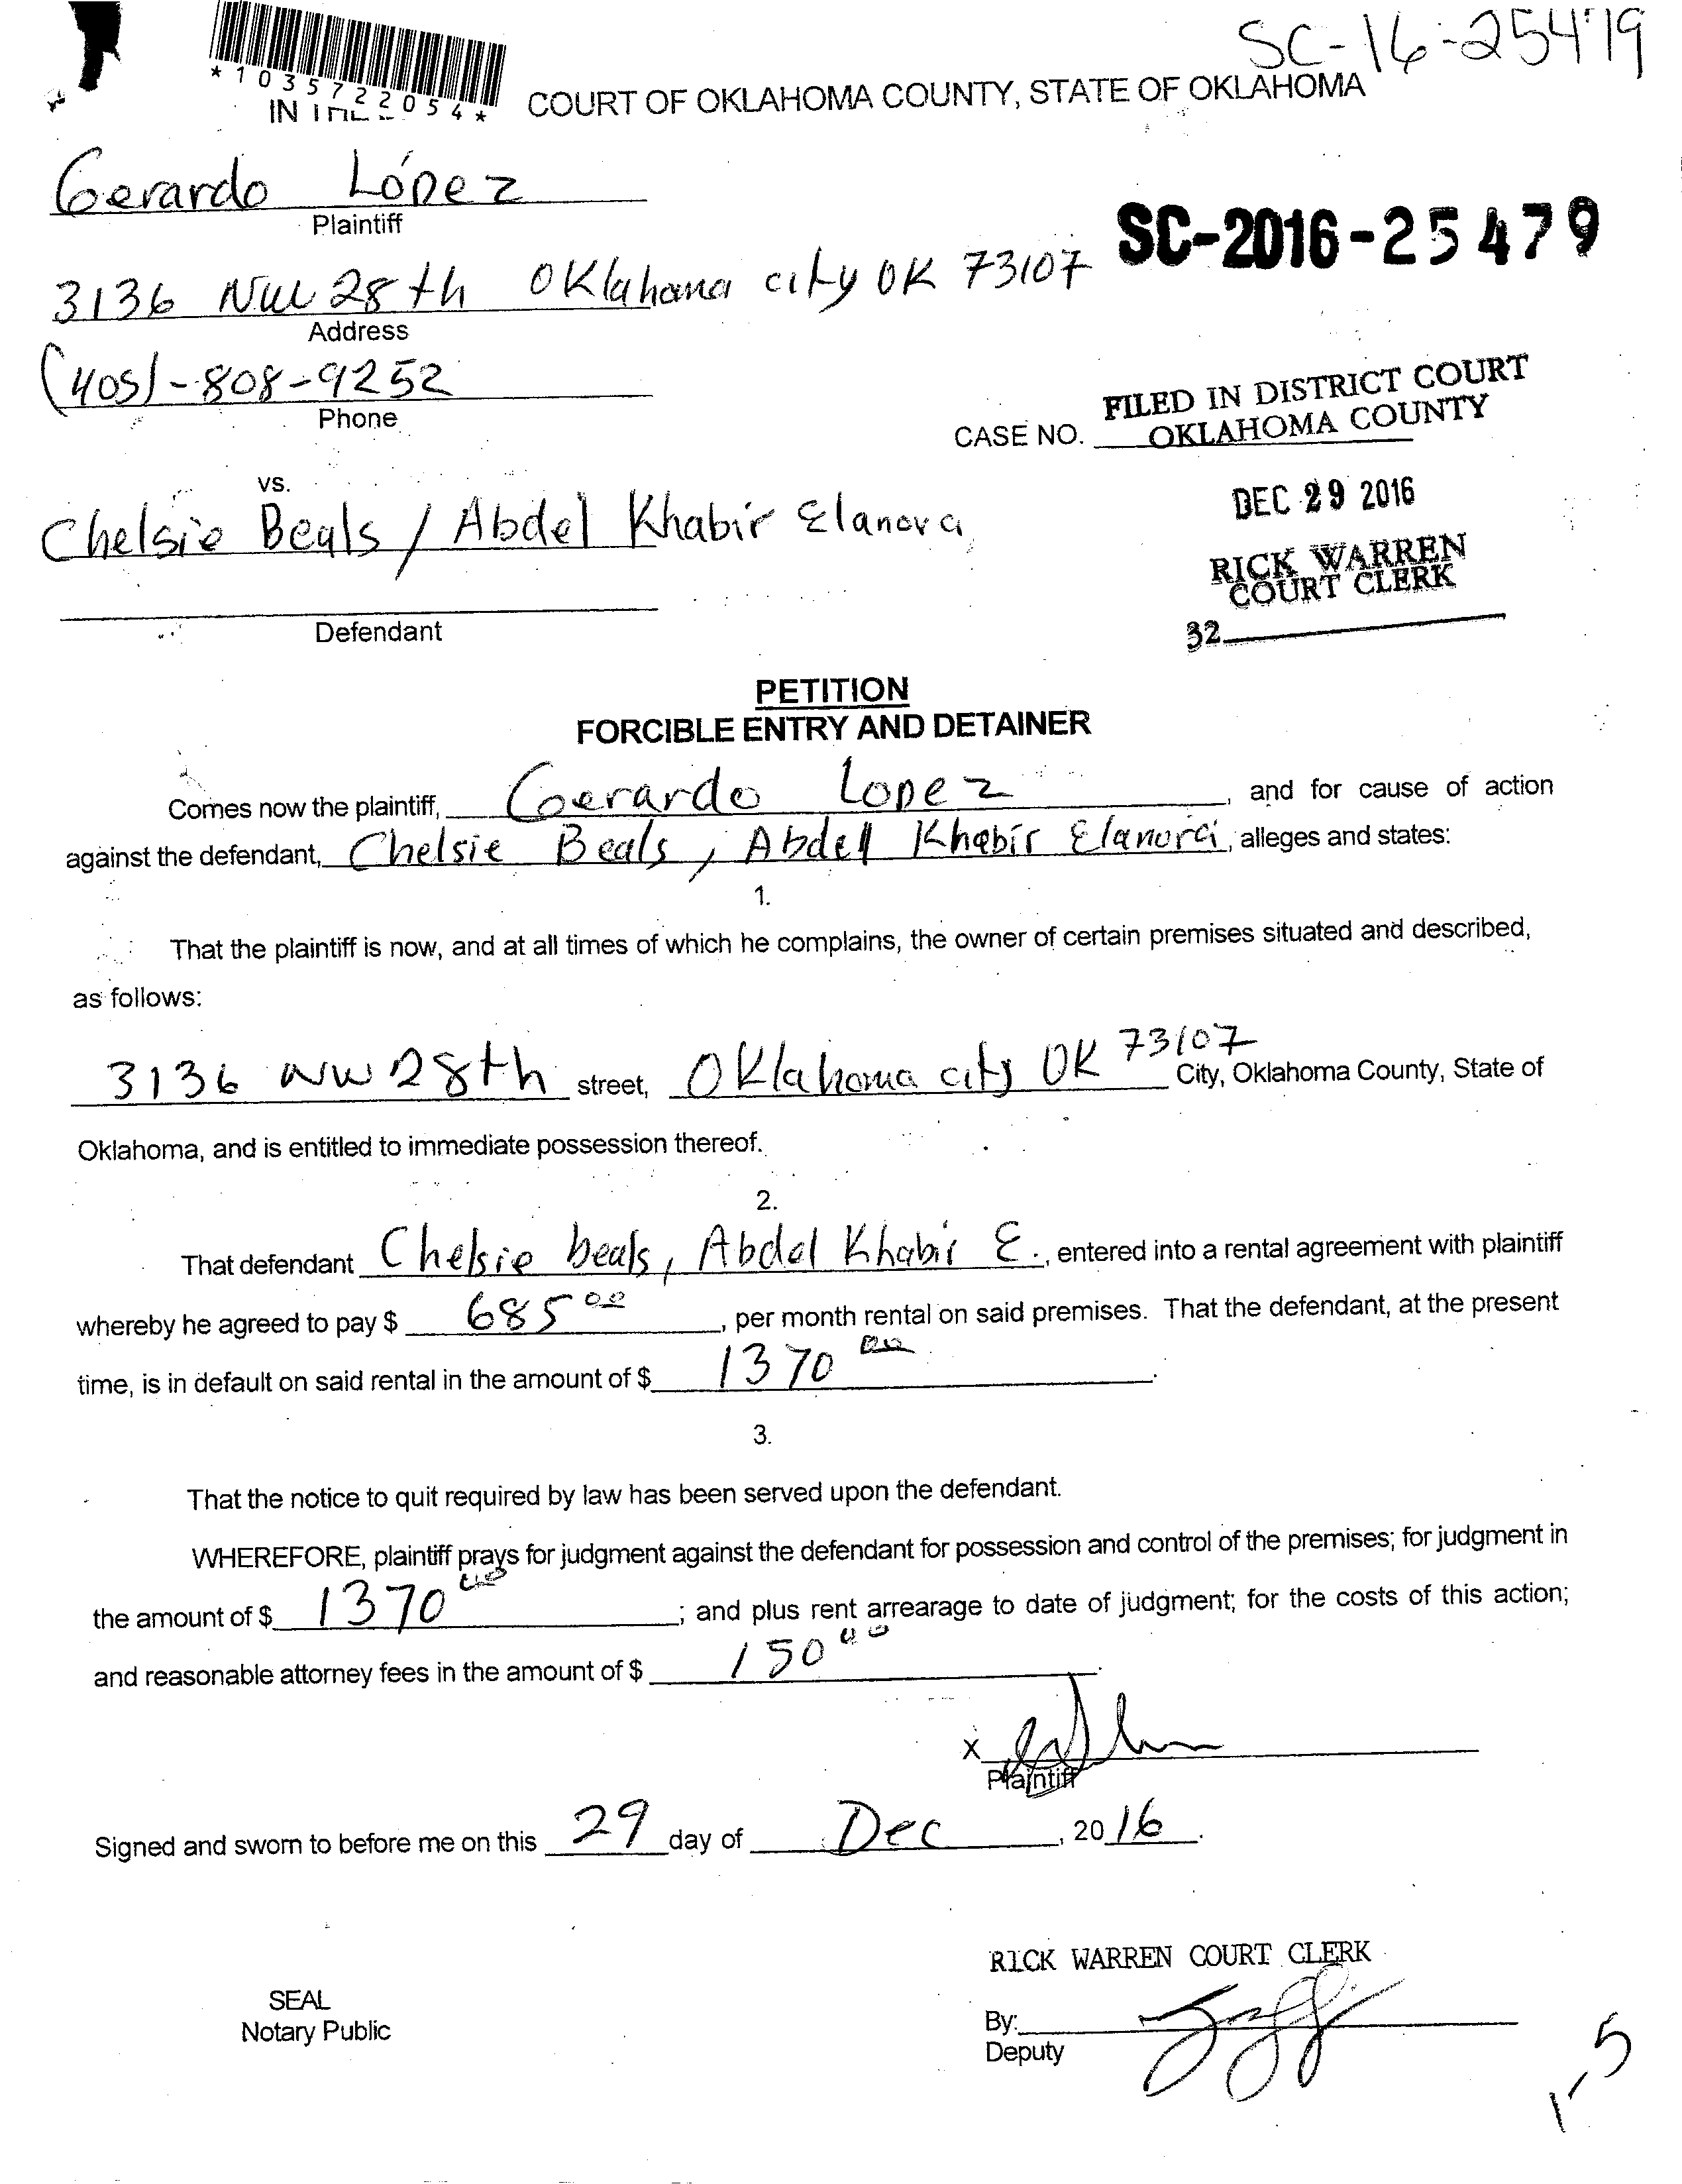 SC-16-25479
*1035722054*
COURT OF OKLAHOMA COUNTY, STATE OF OKLAHOMA
Gerardo López
Plaintiff
SC-2016-25479
3136 NW 28th Oklahoma city OK 73107
Address
(405)-808-9252
Phone
FILED IN DISTRICT COURT
OKLAHOMA COUNTY
CASE NO.
vs.
DEC 29 2016
Chelsie Beals / Abdel Khabir Elanora
RICK WARREN
COURT CLERK
Defendant
32
PETITION
FORCIBLE ENTRY AND DETAINER
Comes now the plaintiff, Gerardo Lopez, and for cause of action
against the defendant, Chelsie Beals, Abdell Khabir Elanora, alleges and states:
1.
That the plaintiff is now, and at all times of which he complains, the owner of certain premises situated and described,
as follows:
3136 NW 28th street, Oklahoma city OK 73107 City, Oklahoma County, State of
Oklahoma, and is entitled to immediate possession thereof.
2.
That defendant Chelsie beals, Abdel Khabir E., entered into a rental agreement with plaintiff
whereby he agreed to pay $ 685 00, per month rental on said premises. That the defendant, at the present
time, is in default on said rental in the amount of $ 1370 00.
3.
That the notice to quit required by law has been served upon the defendant.
WHEREFORE, plaintiff prays for judgment against the defendant for possession and control of the premises; for judgment in
the amount of $ 1370 00; and plus rent arrearage to date of judgment; for the costs of this action;
and reasonable attorney fees in the amount of $ 150 00.
X
Plaintiff
Signed and sworn to before me on this 29 day of Dec, 2016.
RICK WARREN COURT CLERK
SEAL
Notary Public
By:
Deputy
1-5